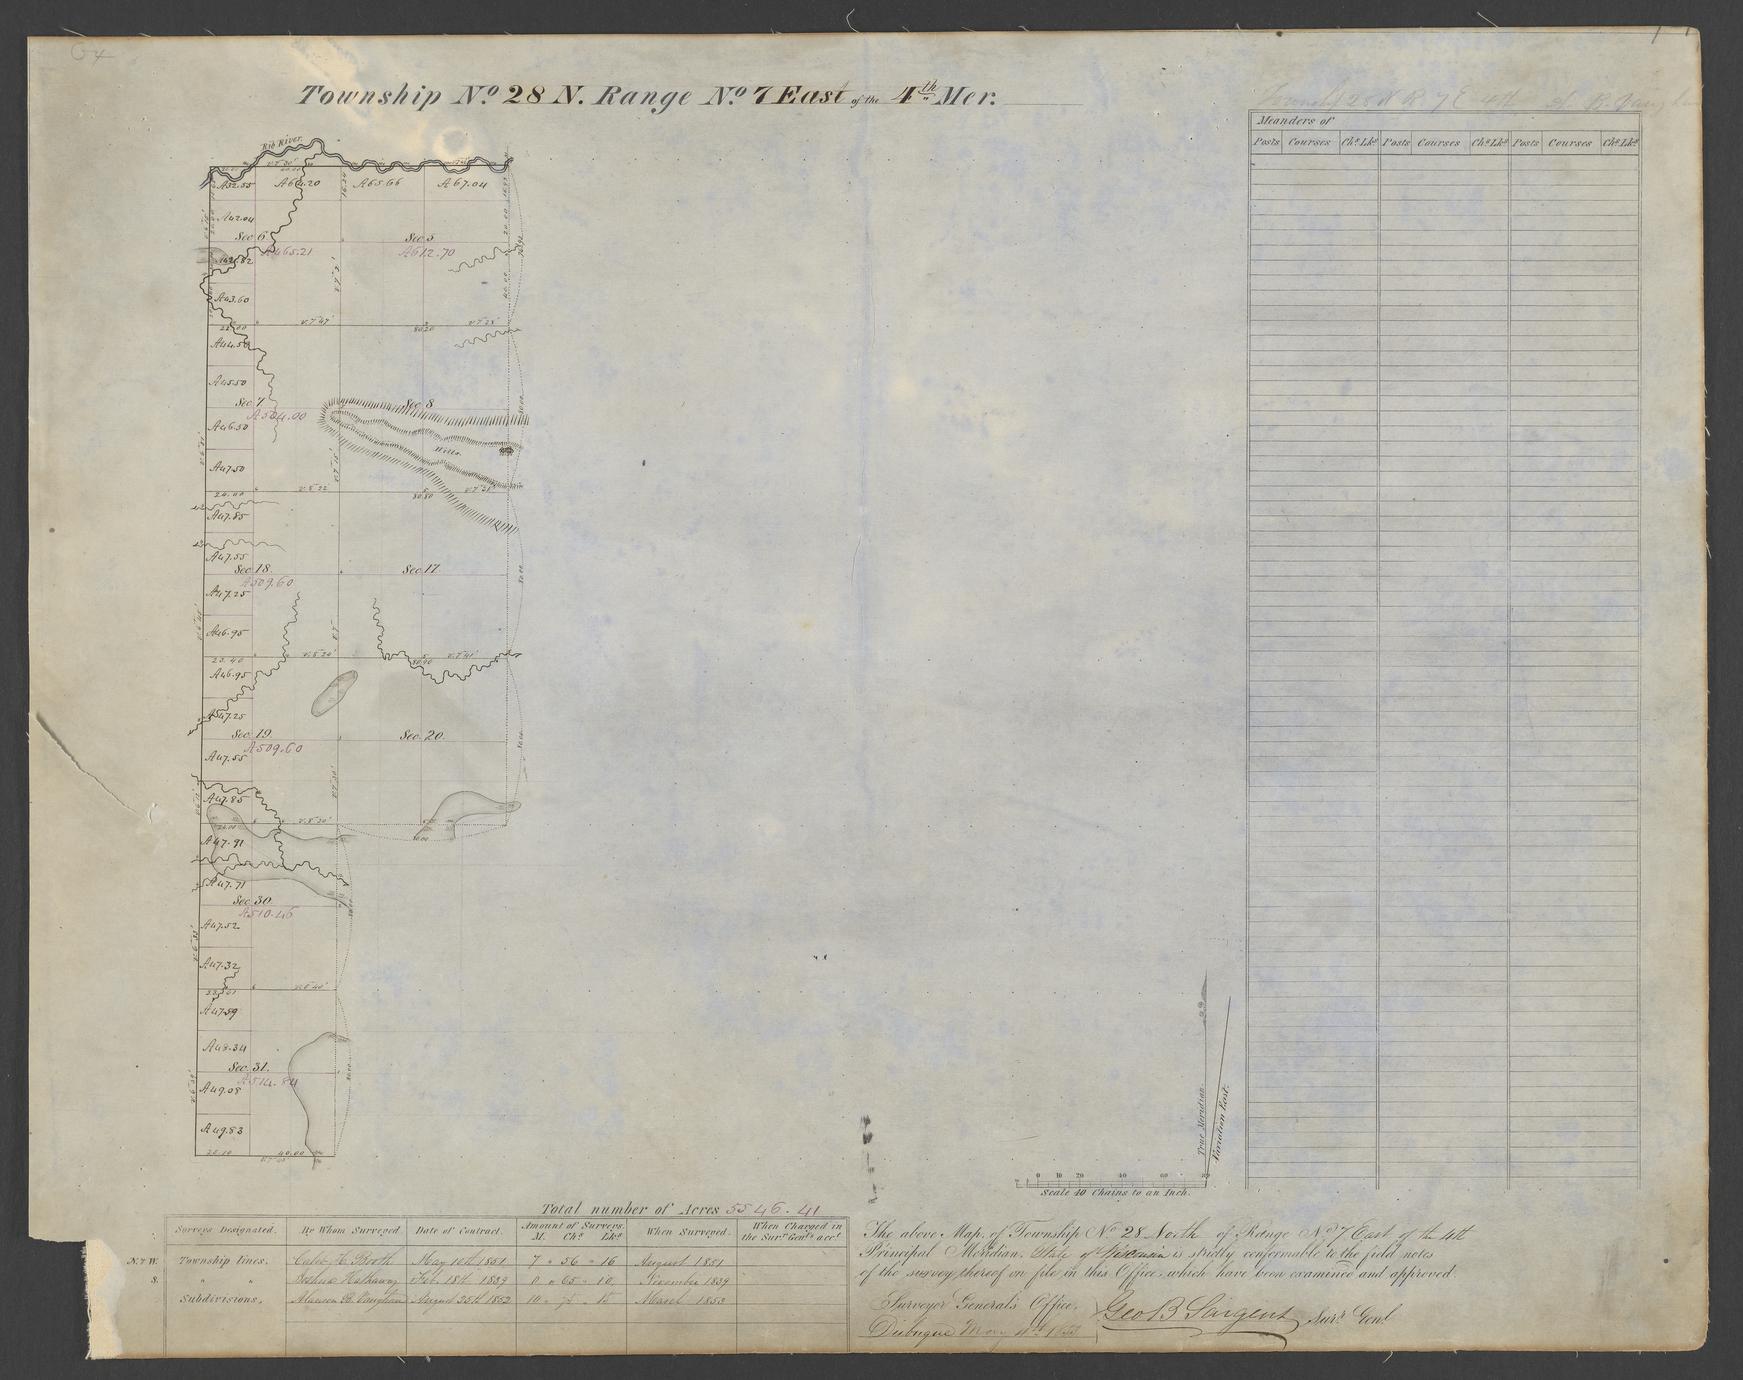 Township Nº 28 N. Range Nº 7 East of the 4th Mer.
Meanders of
Posts Courses Chs Lks Posts Courses Chs Lks Posts Courses Chs Lks
Rib River.
A 64.20 A 65.66 A 67.04
A 42.04
Sec. 6 Sec. 5
A 465.21 A 612.70
A 43.60
22.00 V.7°47' 80.20
A 44.50
A 45.50
Sec. 7 Sec. 8
A 504.00
A 46.50
Hills.
A 47.50
24.00 80.80
A 47.85
A 47.55
Sec. 18. Sec. 17.
A 509.60
A 47.25
A 46.95
23.40
A 46.95
A 47.25
Sec. 19. Sec. 20.
A 509.60
A 47.55
A 47.85
A 47.91
A 47.71
Sec. 30.
A 510.46
A 47.52
A 47.32
A 47.59
A 48.34
Sec. 31.
A 514.84
A 49.08
A 49.83
40.00
True Meridian.
Variation East.
0 10 20 40 60 80
Scale 40 Chains to an Inch.
Total number of Acres 5546.41
Surveys Designated. By Whom Surveyed Date of Contract. Amount of Surveys. M. Chs Lks When Surveyed. When Charged in the Surr Genls acct
N. & W. Township lines. Caleb H. Booth May 10th 1851 7 " 56 " 16 August 1851
S. " " Joshua Hathaway Feb. 18th 1839 0 " 65 " 10 November 1839
Subdivisions. Alanson H. Vaughan August 25th 1852 10 " 75 " 15 March 1853
The above Map, of Township Nº 28 North of Range Nº 7 East of the 4th
Principal Meridian, State of Wisconsin is strictly conformable to the field notes
of the survey thereof on file in this Office, which have been examined and approved.
Surveyor General's Office,
Dubuque May 1853
Geo B Sargent Surr Genl